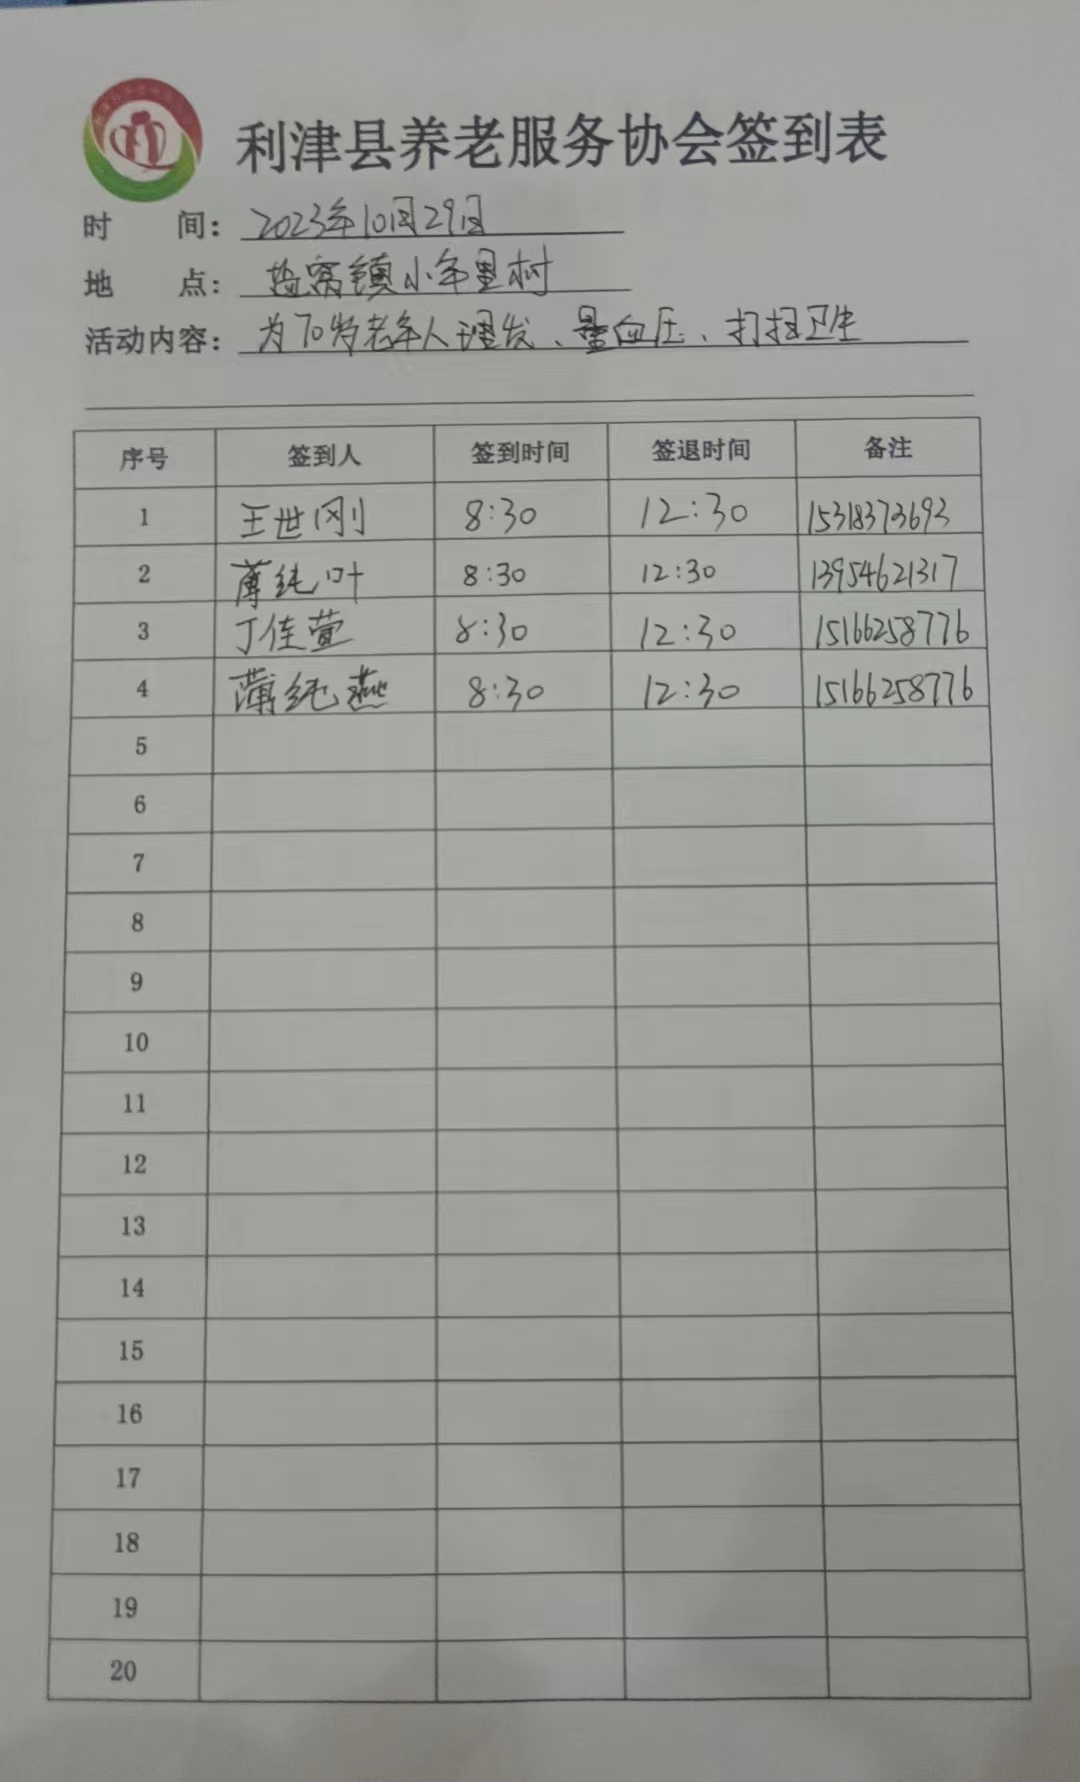 利津县养老服务协会签到表
时 间：2023年10月29日
地 点：盐窝镇小年里村
活动内容：为70岁老年人理发、量血压、打扫卫生
序号 签到人 签到时间 签退时间 备注
1 王世刚 8:30 12:30 15318373693
2 薄纯叶 8:30 12:30 13954621317
3 丁佳萱 8:30 12:30 15166258776
4 薄纯燕 8:30 12:30 15166258776
5
6
7
8
9
10
11
12
13
14
15
16
17
18
19
20